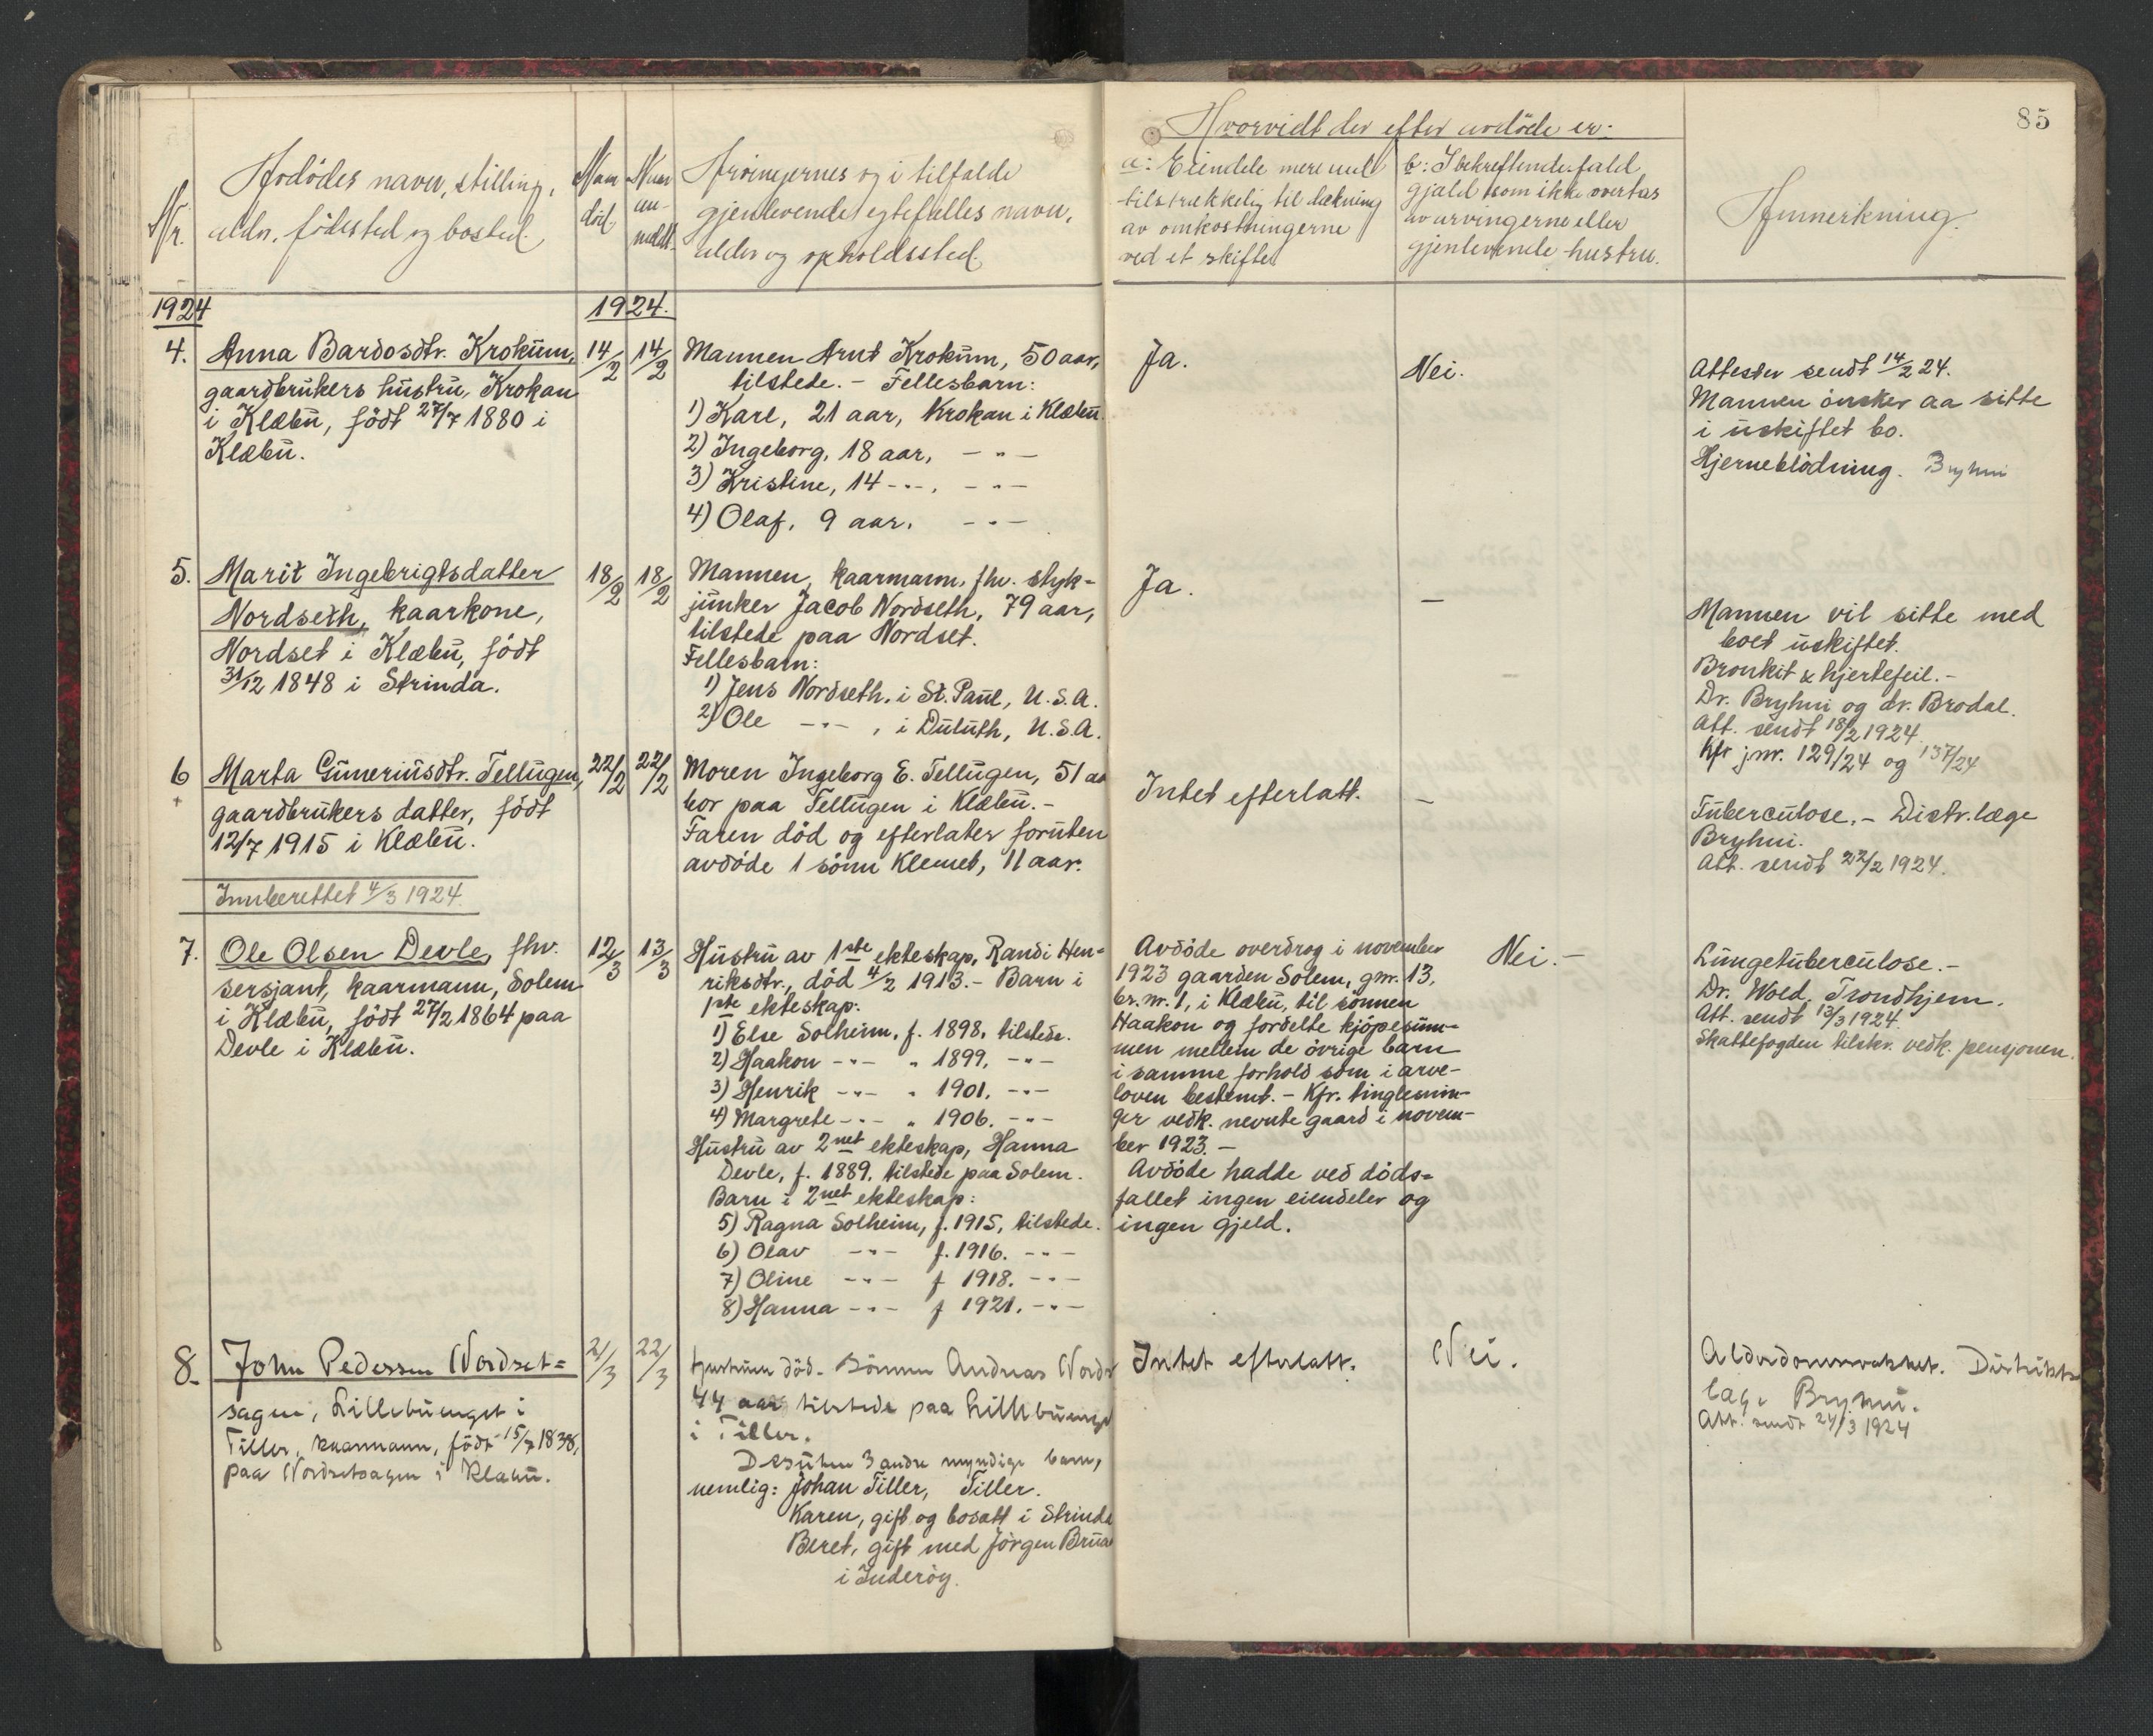 85
Nr.
Afdødes navn, stilling,
alder, fødested og bosted.
Naar
død
Naar
an-
meldt.
Arvingernes og i tilfælde
gjenlevende egtefælles navn,
alder og opholdssted.
Hvorvidt der efter avdøde er:
a: Eiendele mere end
tilstrækkelig til dækning
av omkostningerne
ved et skifte.
b: I bekræftende fald
gjæld som ikke overtas
av arvingerne eller
gjenlevende hustru.
Anmerkning.
1924
1924.
4.
Anna Bardosdtr. Krokum,
gaardbrukers hustru, Krokan
i Klæbu, født 27/7 1880 i
Klæbu.
14/2
14/2
Mannen Arnt Krokum, 50 aar,
tilstede. - Fellesbarn:
1) Karl, 21 aar, Krokan i Klæbu
2) Ingeborg, 18 aar, - " -
3) Kristine, 14 - " -, - " -
4) Olaf, 9 aar, - " -
Ja.
Nei.
Attester sendt 14/2 24.
Mannen ønsker aa sitte
i uskiftet bo.
Hjerneblødning. Bryhni
5.
Marit Ingebrigtsdatter
Nordseth, kaarkone,
Nordset i Klæbu, født
31/12 1848 i Strinda.
18/2
18/2
Mannen, kaarmann, fhv. styk-
junker Jacob Nordseth, 79 aar,
tilstede paa Nordset.
Fellesbarn:
1) Jens Nordseth, i St. Paul, U.S.A.
2) Ole - " -, i Duluth, U.S.A.
Ja.
-
Mannen vil sitte med
boet uskiftet.
Bronkit & hjertefeil. -
Dr. Bryhni og dr. Brodal.
Att. sendt 18/2 1924
Kfr jnr. 129/24 og 137/24
6
+
Marta Guneriusdtr. Tellugen,
gaardbrukers datter, født
12/7 1915 i Klæbu.
22/2
22/2
Moren Ingeborg E. Tellugen, 51 aa
bor paa Tellugen i Klæbu. -
Faren død og efterlater foruten
avdøde 1 sønn Klemet, 11 aar.
Intet efterlatt.
-
Tuberculose. - Distr.læge
Bryhni.
Att. sendt 22/2 1924.
Innberettet 4/3 1924.
7.
Ole Olsen Devle, fhv.
sersjant, kaarmann, Solem
i Klæbu, født 27/2 1864 paa
Devle i Klæbu.
12/3
13/3
Hustru av 1ste ekteskap, Randi Hen-
riksdtr., død 4/2 1913. - Barn i
1ste ekteskap:
1) Else Solheim, f. 1898, tilstede.
2) Haakon - " - " 1899, - " -
3) Henrik - " - " 1901. - " -
4) Margrete - " - " 1906. - " -
Hustru av 2net ekteskap, Hanna
Devle, f. 1889, tilstede paa Solem.
Barn i 2net ekteskap:
5) Ragna Solheim, f. 1915, tilstede.
6) Olav - " - f. 1916. - " -
7) Oline - " - f 1918. - " -
8) Hanna - " - f 1921. - " -
Avdøde overdrog i november
1923 gaarden Solem, gnr. 13,
br. nr. 1, i Klæbu, til sønnen
Haakon og fordelte kjøpesum-
men mellem de øvrige barn
i samme forhold som i arve-
loven bestemt. - Kfr. tinglesnin-
ger vedk. nevnte gaard i novem-
ber 1923. -
Avdøde hadde ved døds-
fallet ingen eiendeler og
ingen gjeld.
Nei. -
Lungetuberculose. -
Dr. Wold, Trondhjem.
Att. sendt 13/3 1924.
Skattefogden tilskr. vedk. pensjonen.
8.
John Pedersen Nordset-
sagen, Lillebuenget i
Tiller, kaarmann, født 15/7 1838,
paa Nordsetsagen i Klæbu.
21/3
22/3
Hustruen død. Sønnen Andreas Nords
44 aar tilstede paa Lillebuenge
i Tiller.
Desuten 3 andre myndige barn,
nemlig: Johan Tiller, Tiller.
Karen, gift og bosatt i Strinda
Beret, gift med Jørgen Bruaa
i Inderøy.
Intet efterlatt.
Nei.
Alderdomssvakhet. Distrikts
læge Bryhni.
Att. sendt 24/3 1924